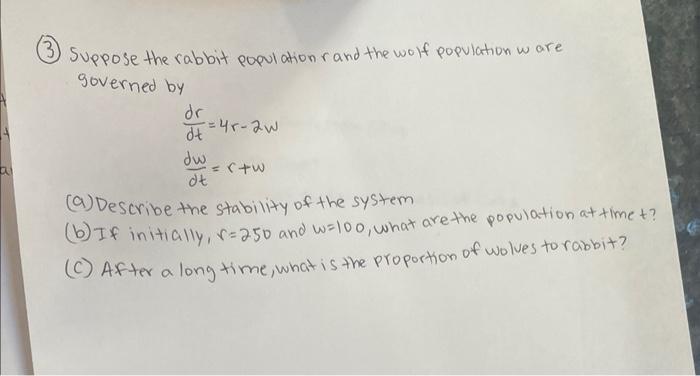 ③ Suppose the rabbit population r and the wolf population w are
governed by
dr/dt = 4r - 2w
dw/dt = r + w
(a) Describe the stability of the system
(b) If initially, r=250 and w=100, what are the population at time t?
(c) After a long time, what is the proportion of wolves to rabbit?